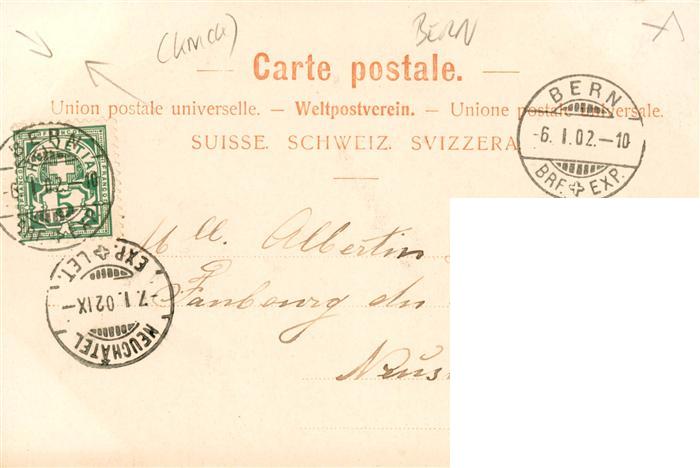 BERN
Carte postale.
Union postale universelle. — Weltpostverein. — Unione postale universale.
SUISSE. SCHWEIZ. SVIZZERA
BERN
-6. I. 02. -10
BRF. EXP.
HELVETIA
5
Mlle. Albertin
Faubourg du
NEUCHÂTEL
-7. I. 02 IX-
EXP. LET.